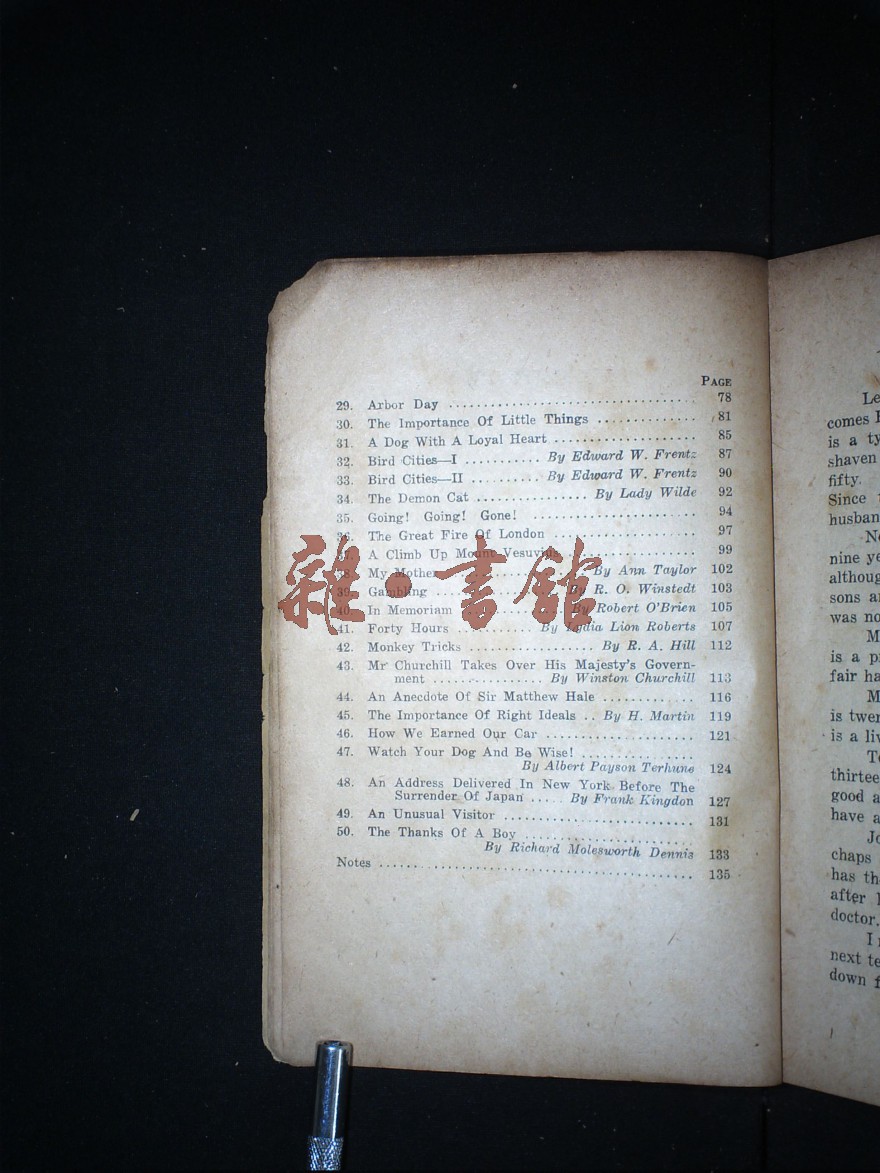 PAGE
29. Arbor Day ..................................... 78
30. The Importance Of Little Things .............. 81
31. A Dog With A Loyal Heart .................... 85
32. Bird Cities—I .......... By Edward W. Frentz 87
33. Bird Cities—II .......... By Edward W. Frentz 90
34. The Demon Cat ................ By Lady Wilde 92
35. Going! Going! Gone! ........................ 94
36. The Great Fire Of London .................... 97
37. A Climb Up Mount Vesuvius .................. 99
38. My Mother ................ By Ann Taylor 102
39. Gambling .................. By R. O. Winstedt 103
40. In Memoriam ................ By Robert O'Brien 105
41. Forty Hours ........... By Lydia Lion Roberts 107
42. Monkey Tricks .................. By R. A. Hill 112
43. Mr Churchill Takes Over His Majesty's Govern-
ment ................ By Winston Churchill 113
44. An Anecdote Of Sir Matthew Hale ............. 116
45. The Importance Of Right Ideals .. By H. Martin 119
46. How We Earned Our Car ...................... 121
47. Watch Your Dog And Be Wise! ................
By Albert Payson Terhune 124
48. An Address Delivered In New York Before The
Surrender Of Japan ..... By Frank Kingdon 127
49. An Unusual Visitor ............................ 131
50. The Thanks Of A Boy .........................
By Richard Molesworth Dennis 133
Notes ............................................... 135
雜·書館
comes
is a
shaven
fifty.
Since
nine
sons
was no
is a
fair
is
is a
good
have a
chaps
has
after
doctor.
I
next
down